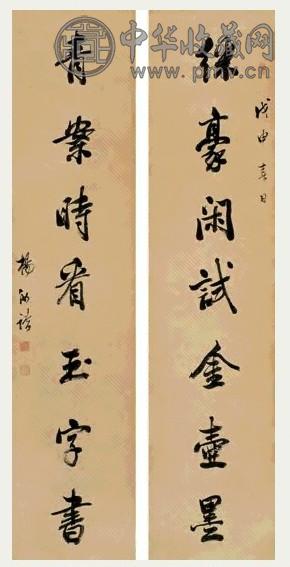 中华收藏网
www.pmv.cn
戊申春日
綵豪閑試金壺墨
青案時看玉字書
楊